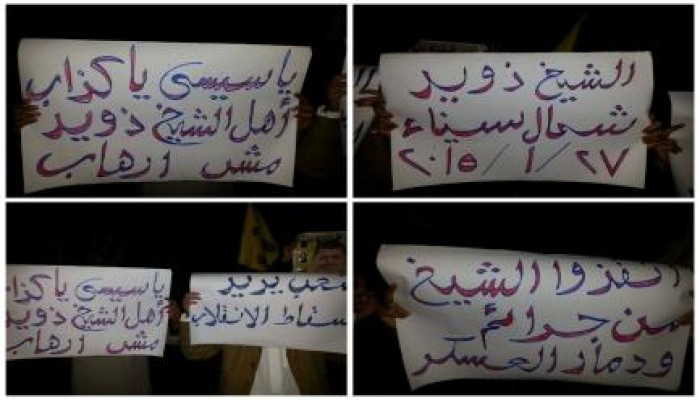 ياسيسى ياكزاب
أهل الشيخ ذويد
مش ارهاب
الشيخ ذويد
شمال سيناء
٢٠١٥/١/٢٧
ياسيسى ياكزا
أهل الشيخ ذويد
مش ارهاب
شعب يريد
سقاط الانقلاب
انقزوا الشيخ
من جرائم
ودمار العسكر